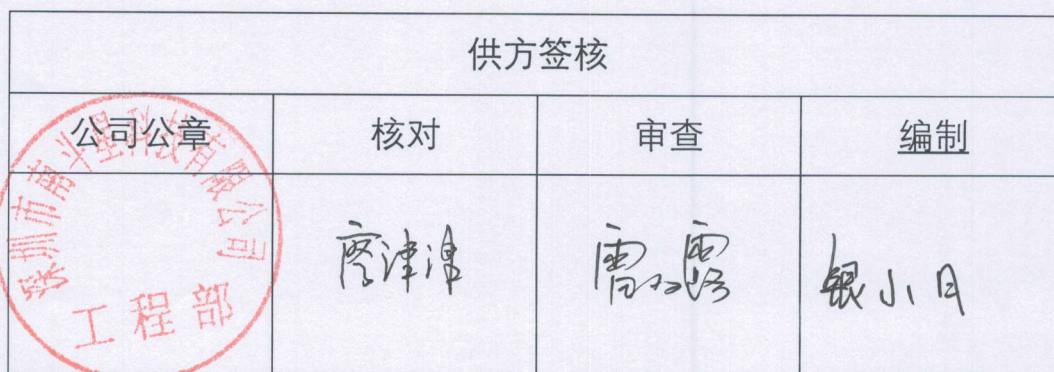 供方签核
公司公章 核对 审查 编制
深圳市南斗星科技有限公司
工程部
廖津津 银小月